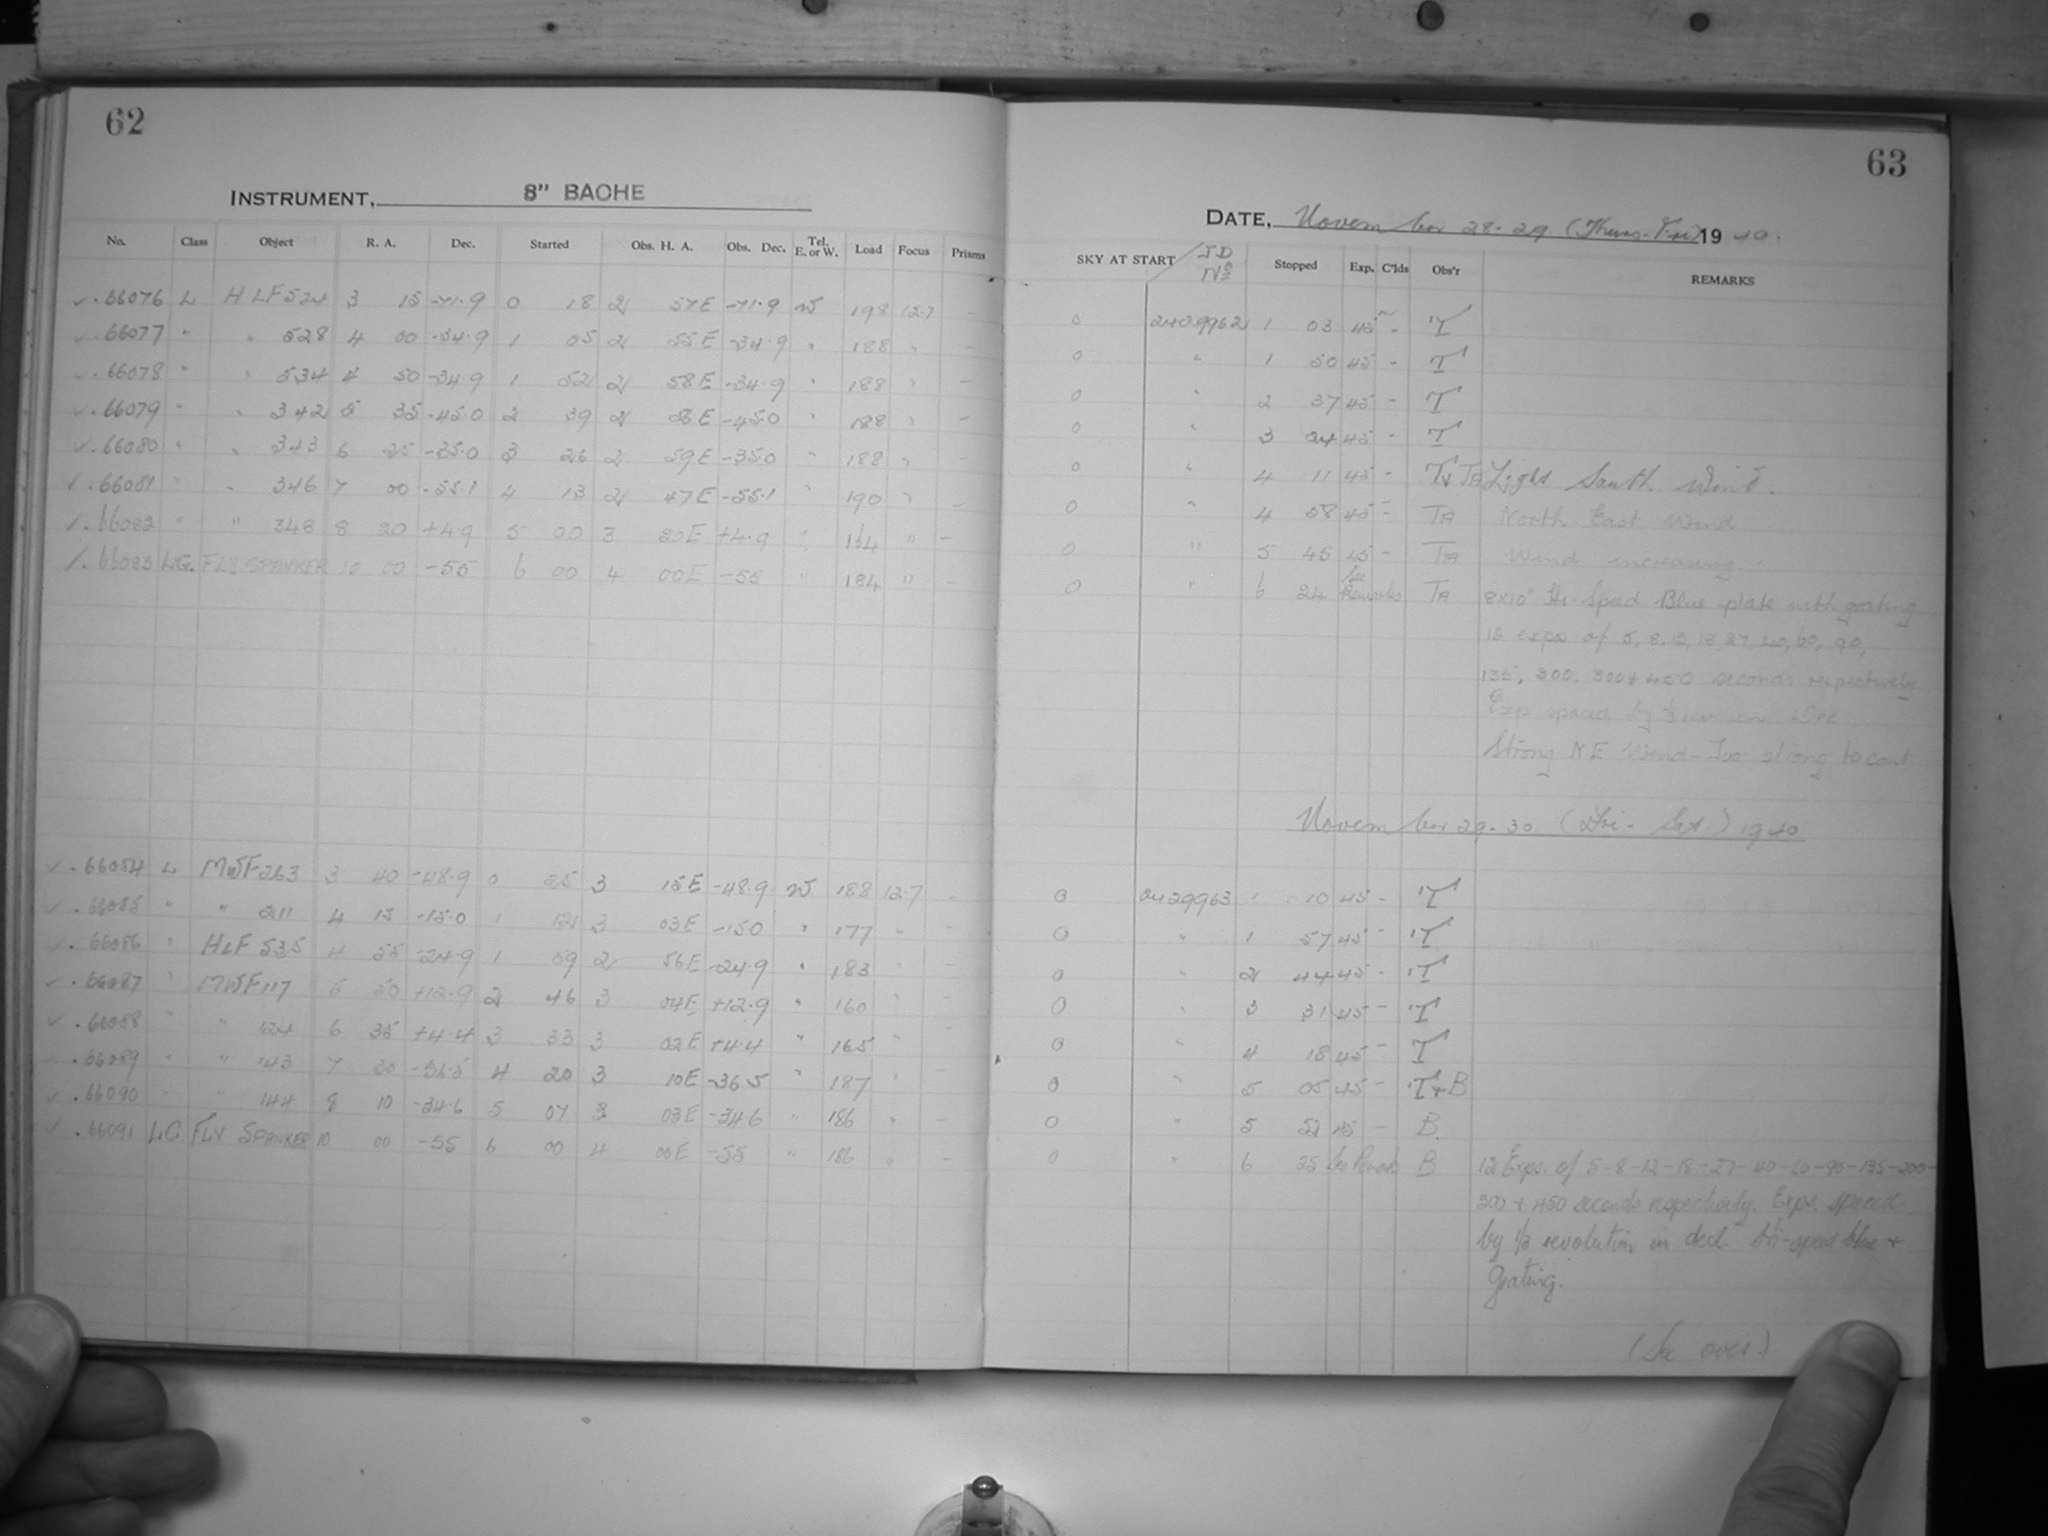 62
INSTRUMENT, 8" BACHE
No. Class Object R. A. Dec. Started Obs. H. A. Obs. Dec. Tel. E. or W. Load Focus Prisms
✓ .66076 L HLF 524 3 15 -71.9 0 18 2 57E -71.9 W 198 12.7 -
✓ .66077 " " 528 4 00 -34.9 1 05 2 55E -34.9 " 188 " -
✓ .66078 " " 534 4 50 -34.9 1 52 2 58E -34.9 " 188 " -
✓ .66079 " " 342 5 35 -45.0 2 39 2 56E -45.0 " 188 " -
✓ .66080 " " 343 6 25 -35.0 3 26 2 59E -35.0 " 188 " -
✓ .66081 " " 346 7 00 -55.1 4 13 2 47E -55.1 " 190 " -
✓ .66082 " " 348 8 20 +4.9 5 00 3 20E +4.9 " 164 " -
✓ .66083 LG. FLY SPANKER 10 00 -55 6 00 4 00E -55 " 184 " -
✓ .66084 L MWF 263 3 40 -48.9 0 25 3 15E -48.9 W 188 12.7 -
✓ .66085 " " 211 4 15 -15.0 1 12 3 03E -15.0 " 177 " -
✓ .66086 " HLF 535 4 55 -24.9 1 59 2 56E -24.9 " 183 " -
✓ .66087 " MWF 117 5 50 +12.9 2 46 3 04E +12.9 " 160 " -
✓ .66088 " " 124 6 35 +4.4 3 33 3 02E +4.4 " 165 " -
✓ .66089 " " 143 7 30 -36.5 4 20 3 10E -36.5 " 187 " -
✓ .66090 " " 144 8 10 -34.6 5 07 3 03E -34.6 " 186 " -
✓ .66091 LG. FLY SPANKER 10 00 -55 6 00 4 00E -55 " 186 " -
63
DATE, November 28-29 (Thurs-Fri) 1940.
SKY AT START JD No Stopped Exp. C'lds Obs'r REMARKS
0 2429962 1 03 45 - T
0 " 1 50 45 - T
0 " 2 37 45 - T
0 " 3 24 45 - T
0 " 4 11 45 - T+TA Light South Wind.
0 " 4 58 45 - TA North East Wind
0 " 5 45 45 - TA Wind increasing.
0 " 6 24 See Remarks TA 8x10" Hi-Speed Blue plate with grating
12 expo of 5, 8, 12, 18 27 40, 60, 90,
135, 200, 300 + 450 seconds respectively
Exp spaced by in Dec
Strong N.E Wind - Too strong to cont
November 29-30 (Fri-Sat.) 1940
0 2429963 1 10 45 - T
0 " 1 57 45 - T
0 " 2 44 45 - T
0 " 3 31 45 - T
0 " 4 18 45 - T
0 " 5 05 45 - T+B
0 " 5 52 45 - B.
0 " 6 25 See Remarks B 12 Exps. of 5-8-12-18-27-40-60-90-135-200-
300 + 450 seconds respectively. Exps. spaced
by 1/3 revolution in decl. Hi-speed blue +
Grating.
(See over.)